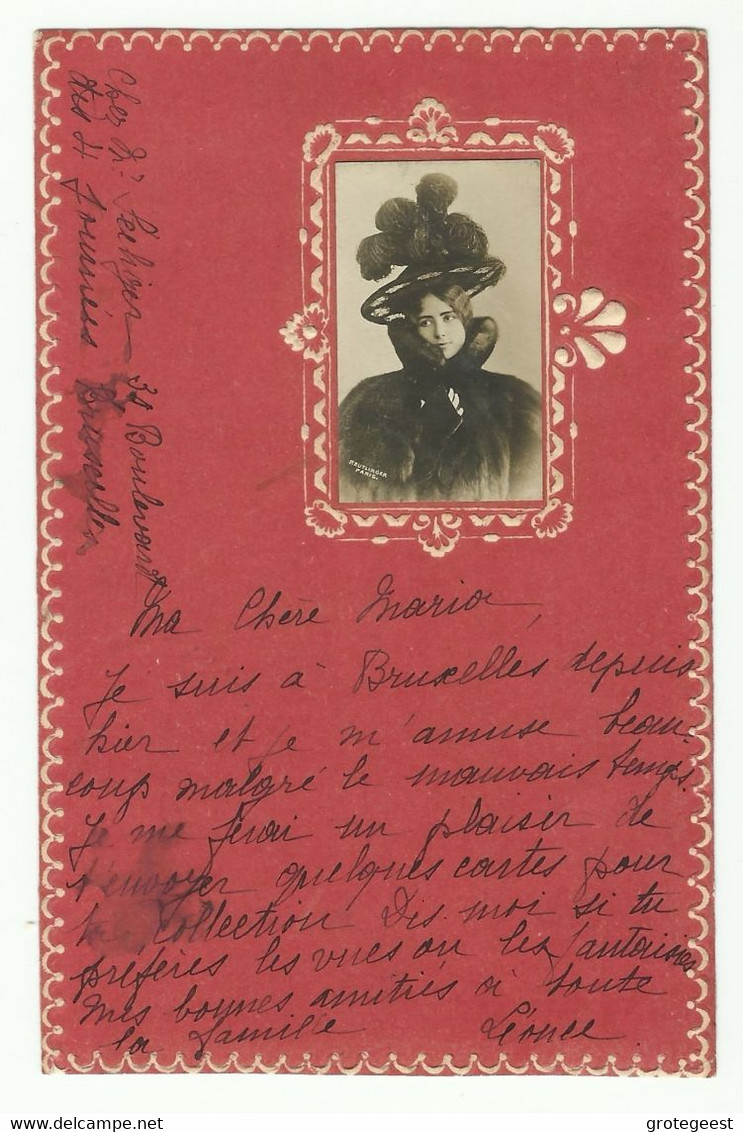 Chez Mr
31 Boulevard
des 4 Journées Bruxelles
REUTLINGER
PARIS.
Ma Chère Maria,
Je suis à Bruxelles depuis
hier et je m'amuse beau-
coup malgré le mauvais temps.
Je me ferai un plaisir de
t'envoyer quelques cartes pour
ta collection Dis moi si tu
préfères les vues ou les fantaisies
Mes bonnes amitiés à toute
la famille Léonce
grotegeest